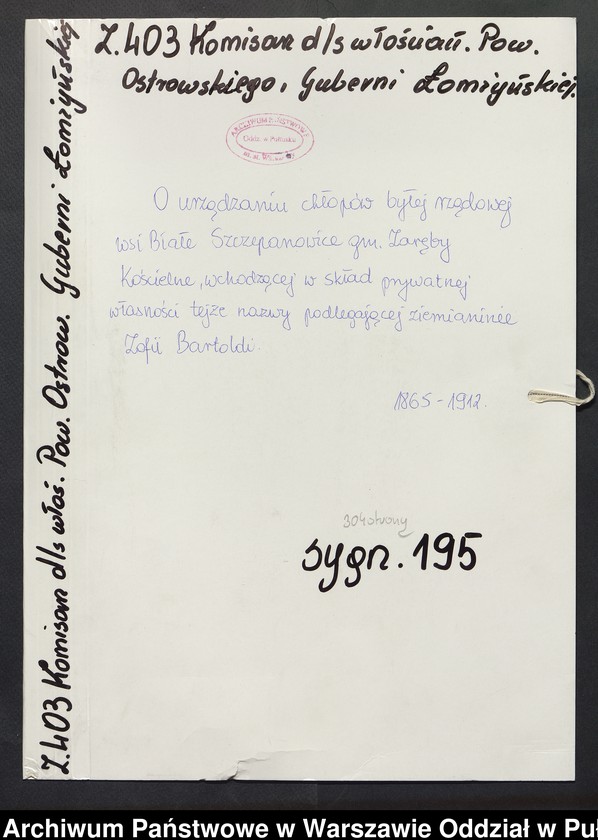 Z.403 Komisarz d/s włościań. Pow.
Ostrowskiego, Guberni Łomżyńskiej.
ARCHIWUM PAŃSTWOWE
Oddz. w Pułtusku
O urządzaniu chłopów byłej rządowej
wsi Białe Szczepanowice gm. Zaręby
Kościelne, wchodzącej w skład prywatnej
własności tejże nazwy podlegającej ziemianinie
Zofii Bartoldi.
1865-1912.
304 strony
sygn. 195
Z.403 Komisarz d/s włoś. Pow. Ostrow. Guberni Łomżyńskiej
Archiwum Państwowe w Warszawie Oddział w Puł